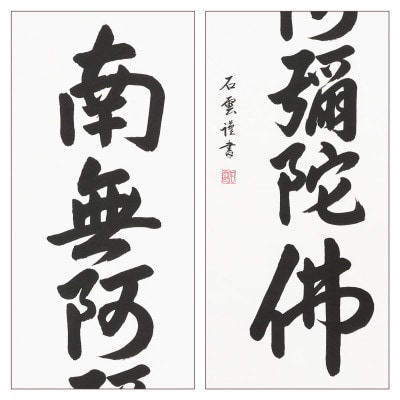 南無阿彌
阿彌陀佛
石雲謹書